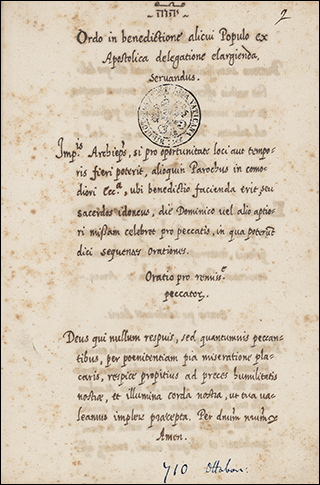 יהוה
2
Ordo in benedictione alicui Populo ex
Apostolica delegatione elargienda
servandus.
Imp.s Archiep.s, si pro oportunitate loci aut tempo-
ris fieri poterit, alioquin Parochus in como-
diori Ecc.a, ubi benedictio facienda erit, seu
sacerdos idoneus, die Dominico vel alio aptio-
ri missam celebret pro peccatis, in qua poterunt
dici sequentes orationes.
Oratio pro remiss.e
peccator.
Deus qui nullum respuis, sed quantumvis peccan-
tibus, per poenitentiam pia miseratione pla-
caris, respice propitius ad preces humilitatis
nostrae, et illumina corda nostra, ut tua va-
leamus implere praecepta. Per dnum nrum &
Amen.
710 Ottobon: